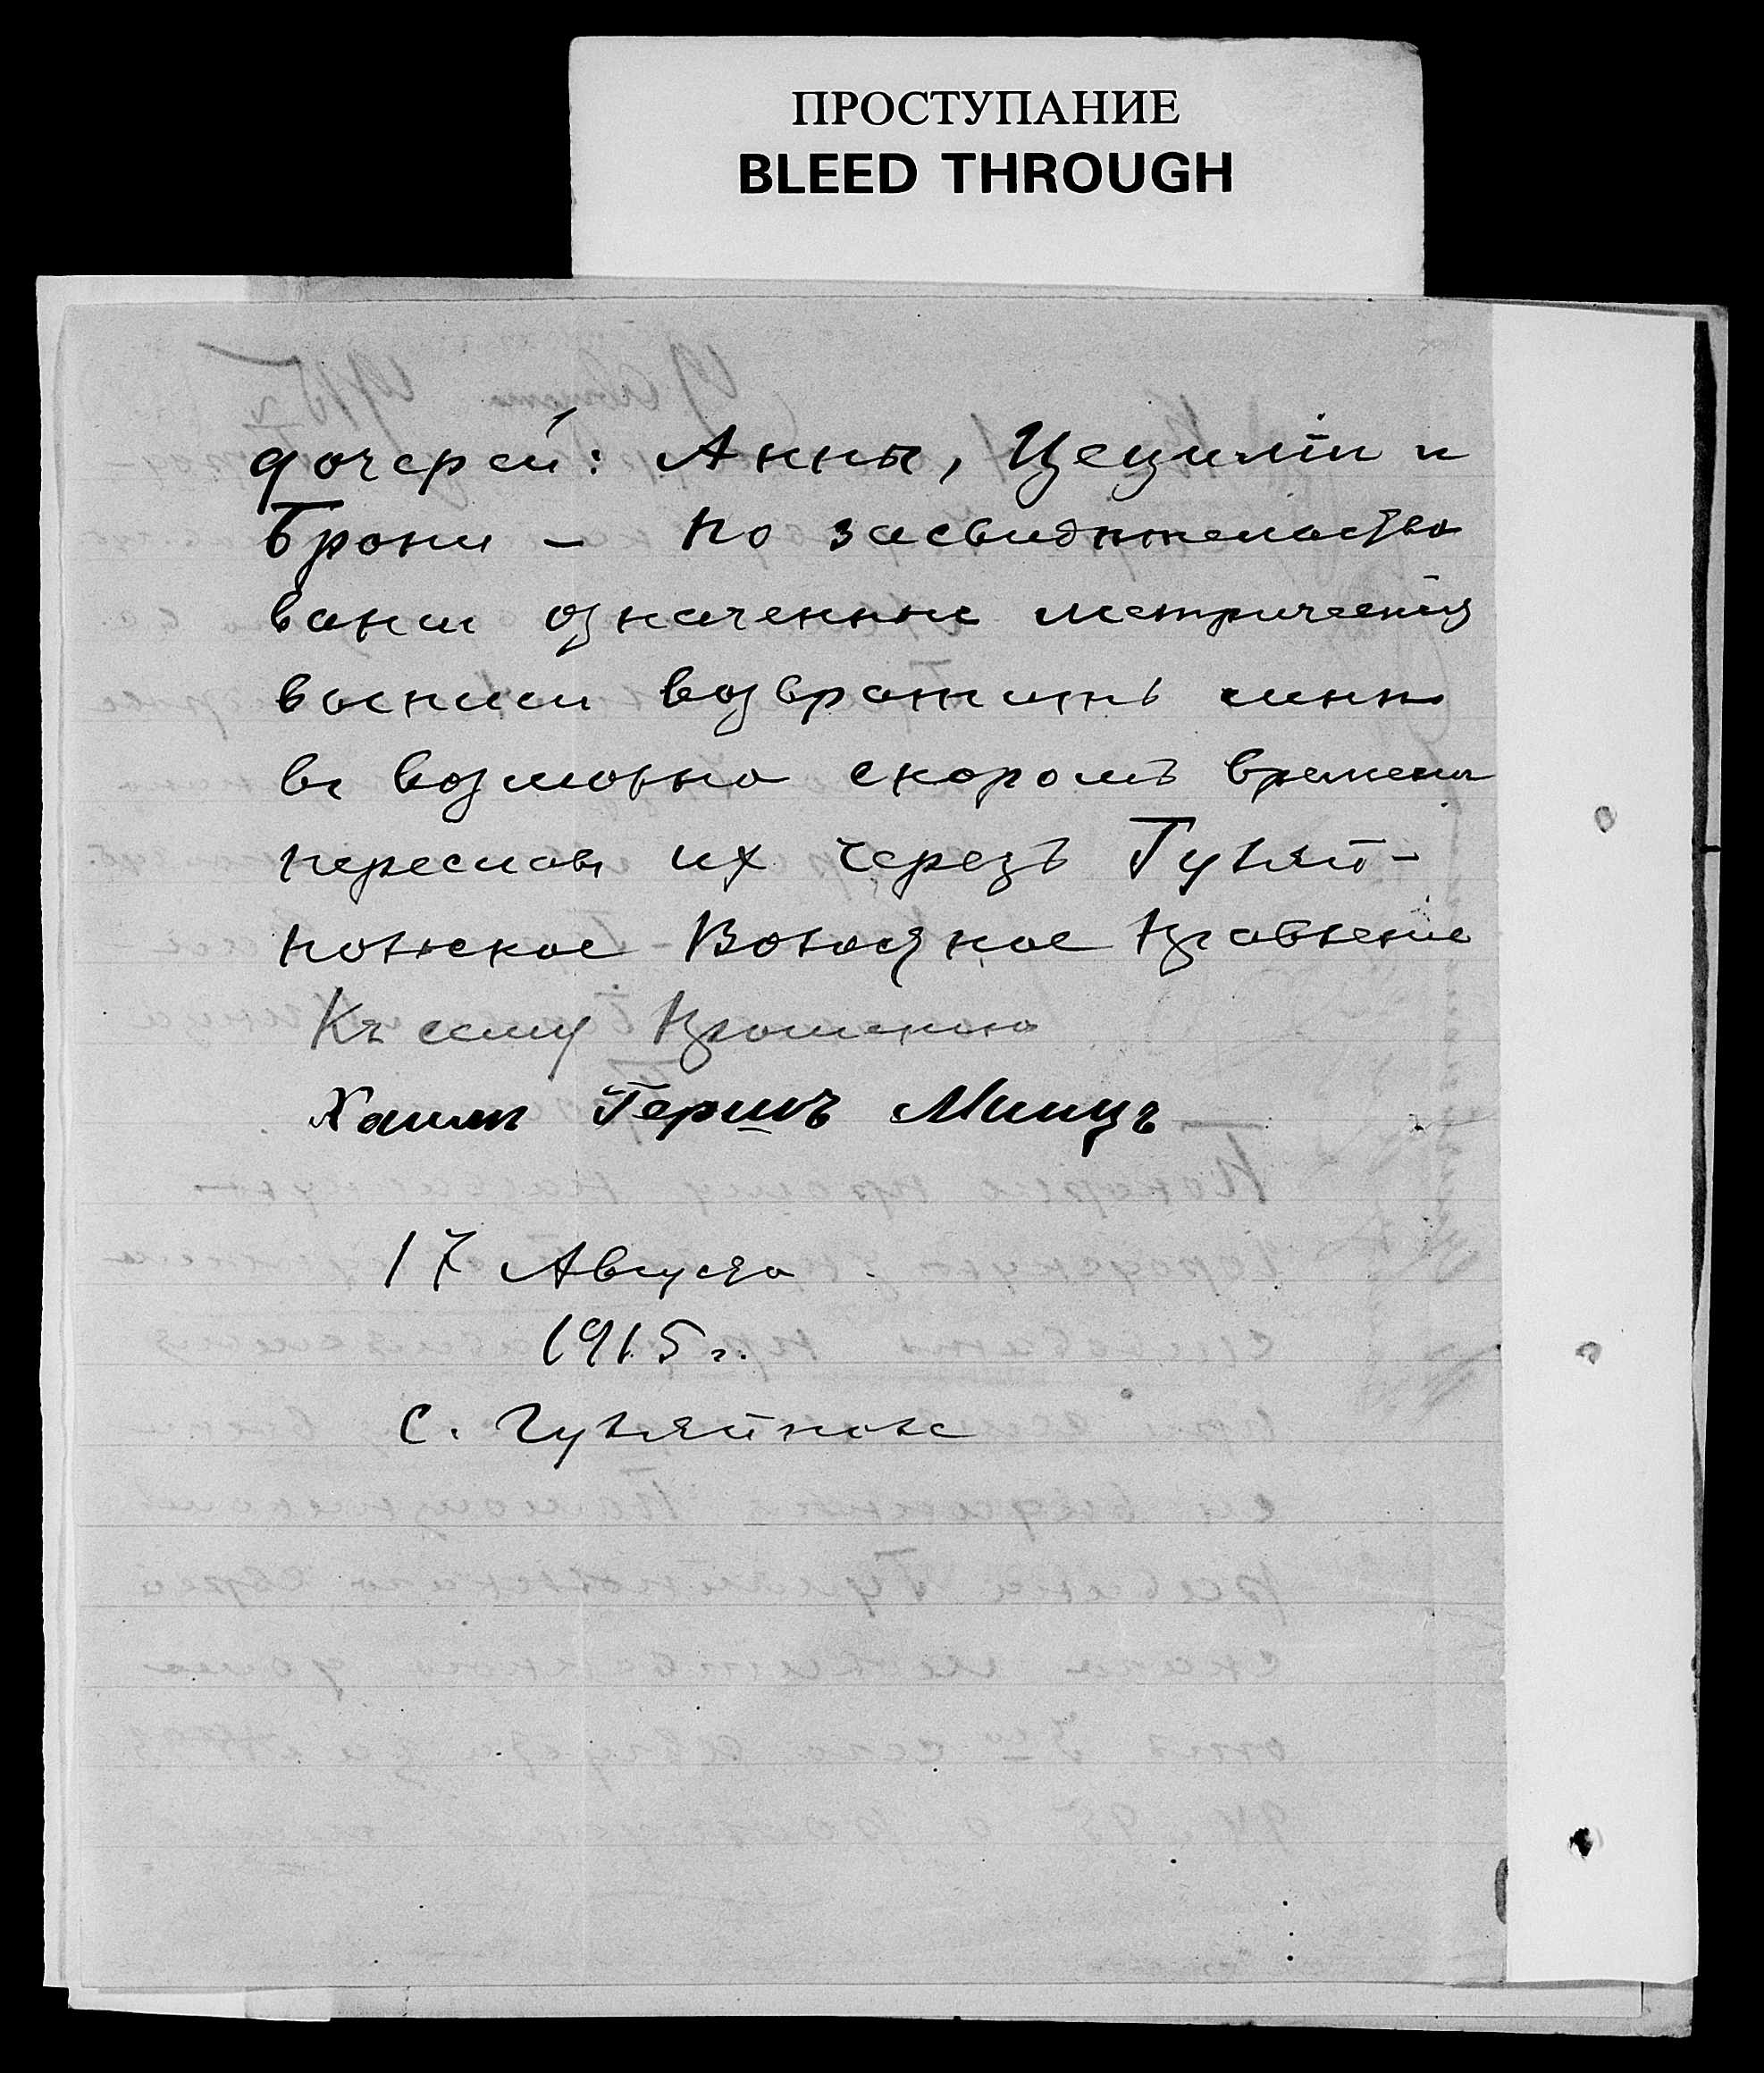 ПРОСТУПАНИЕ
BLEED THROUGH
дочерей: Анны, Цецилiи и
Брони – по засвидѣтельство
ванiи означенные метрическiя
выписи возвратить мнѣ
въ возможно скоромъ времени
переславъ их черезъ Гуляй-
польское Волостное Правленiе
Къ сему прошенiю
Хаимъ Гершъ Минцъ
17 Августа
1915 г.
с. Гуляйполе